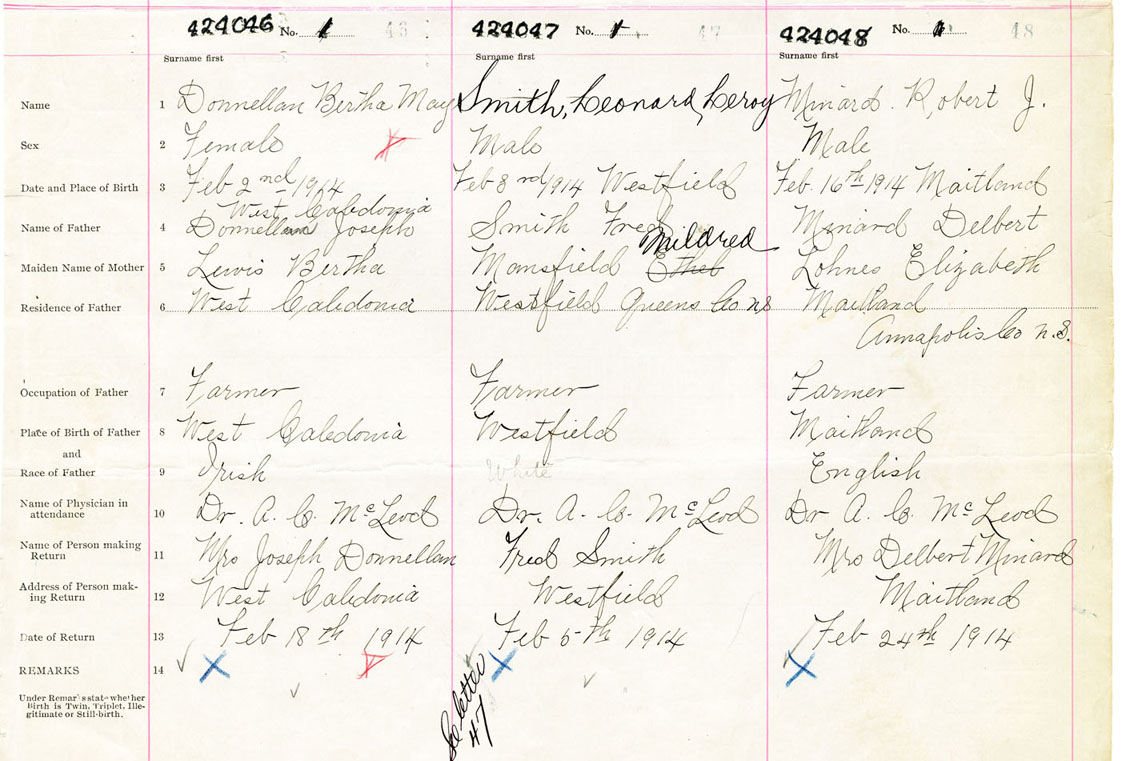 424046 No. 1 46 424047 No. 1 47 424048 No. 1 48
Surname first Surname first Surname first
Name 1 Donnellan Bertha May Smith, Leonard, Leroy Minard. Robert J.
Sex 2 Female Male Male
Date and Place of Birth 3 Feb 2nd 1914 Feb 3rd 1914 Westfield Feb. 16th 1914 Maitland
West Caledonia
Name of Father 4 Donnellan Joseph Smith Fred Minard Delbert
Mildred
Maiden Name of Mother 5 Lewis Bertha Mansfield Ethel Lohnes Elizabeth
Residence of Father 6 West Caledonia Westfield Queens Co NS Maitland
Annapolis Co N.S.
Occupation of Father 7 Farmer Farmer Farmer
Place of Birth of Father 8 West Caledonia Westfield Maitland
and
Race of Father 9 Irish White English
Name of Physician in
attendance 10 Dr. A. C. McLeod Dr. A. C. McLeod Dr A. C. McLeod
Name of Person making
Return 11 Mrs Joseph Donnellan Fred Smith Mrs Delbert Minard
Address of Person mak-
ing Return 12 West Caledonia Westfield Maitland
Date of Return 13 Feb 18th 1914 Feb 5th 1914 Feb 24th 1914
REMARKS 14 X X X
Under Remarks state whether
Birth is Twin, Triplet, Ille-
gitimate or Still-birth.
letter
47